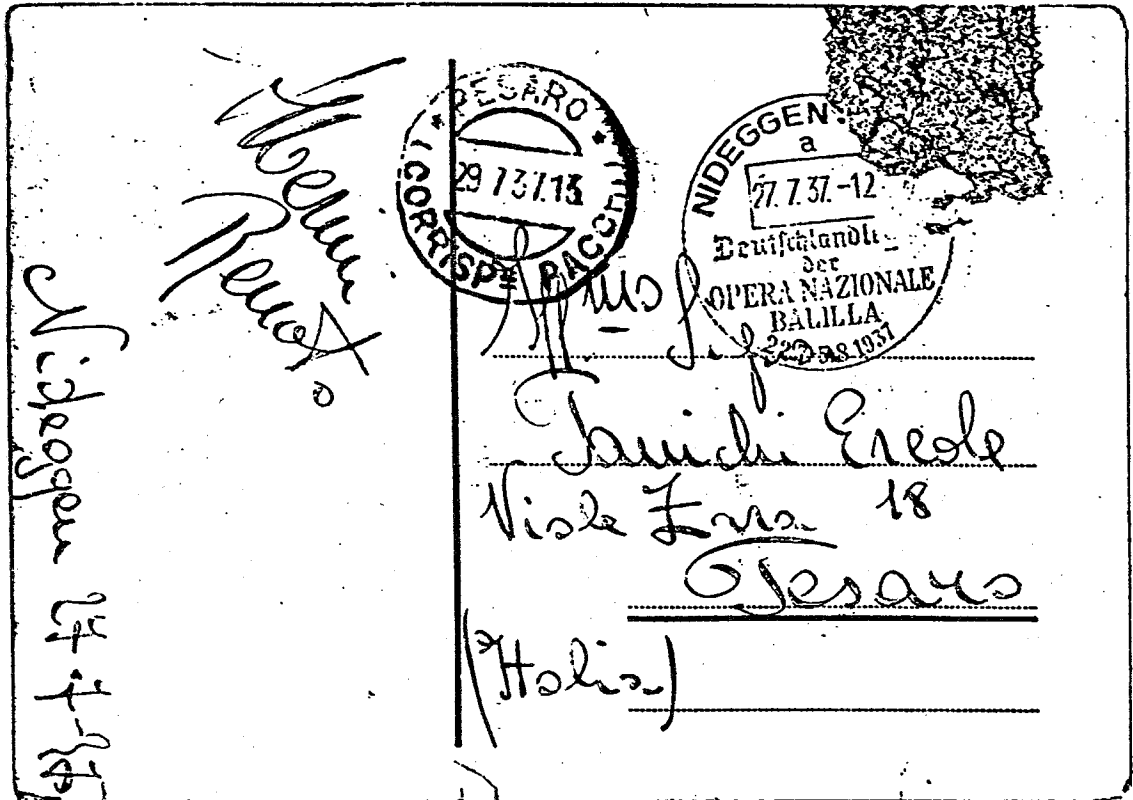 Nideggen 27-7-37
Remo
PESARO
29 7 37.13
CORRISPZE PACCHI (1)
NIDEGGEN
a
27.7.37.-12
Deutschlandl
der
OPERA NAZIONALE
BALILLA
8.1937
Ill mo Sig
Ercole
Viale Zara 18
Pesaro
(Italia)